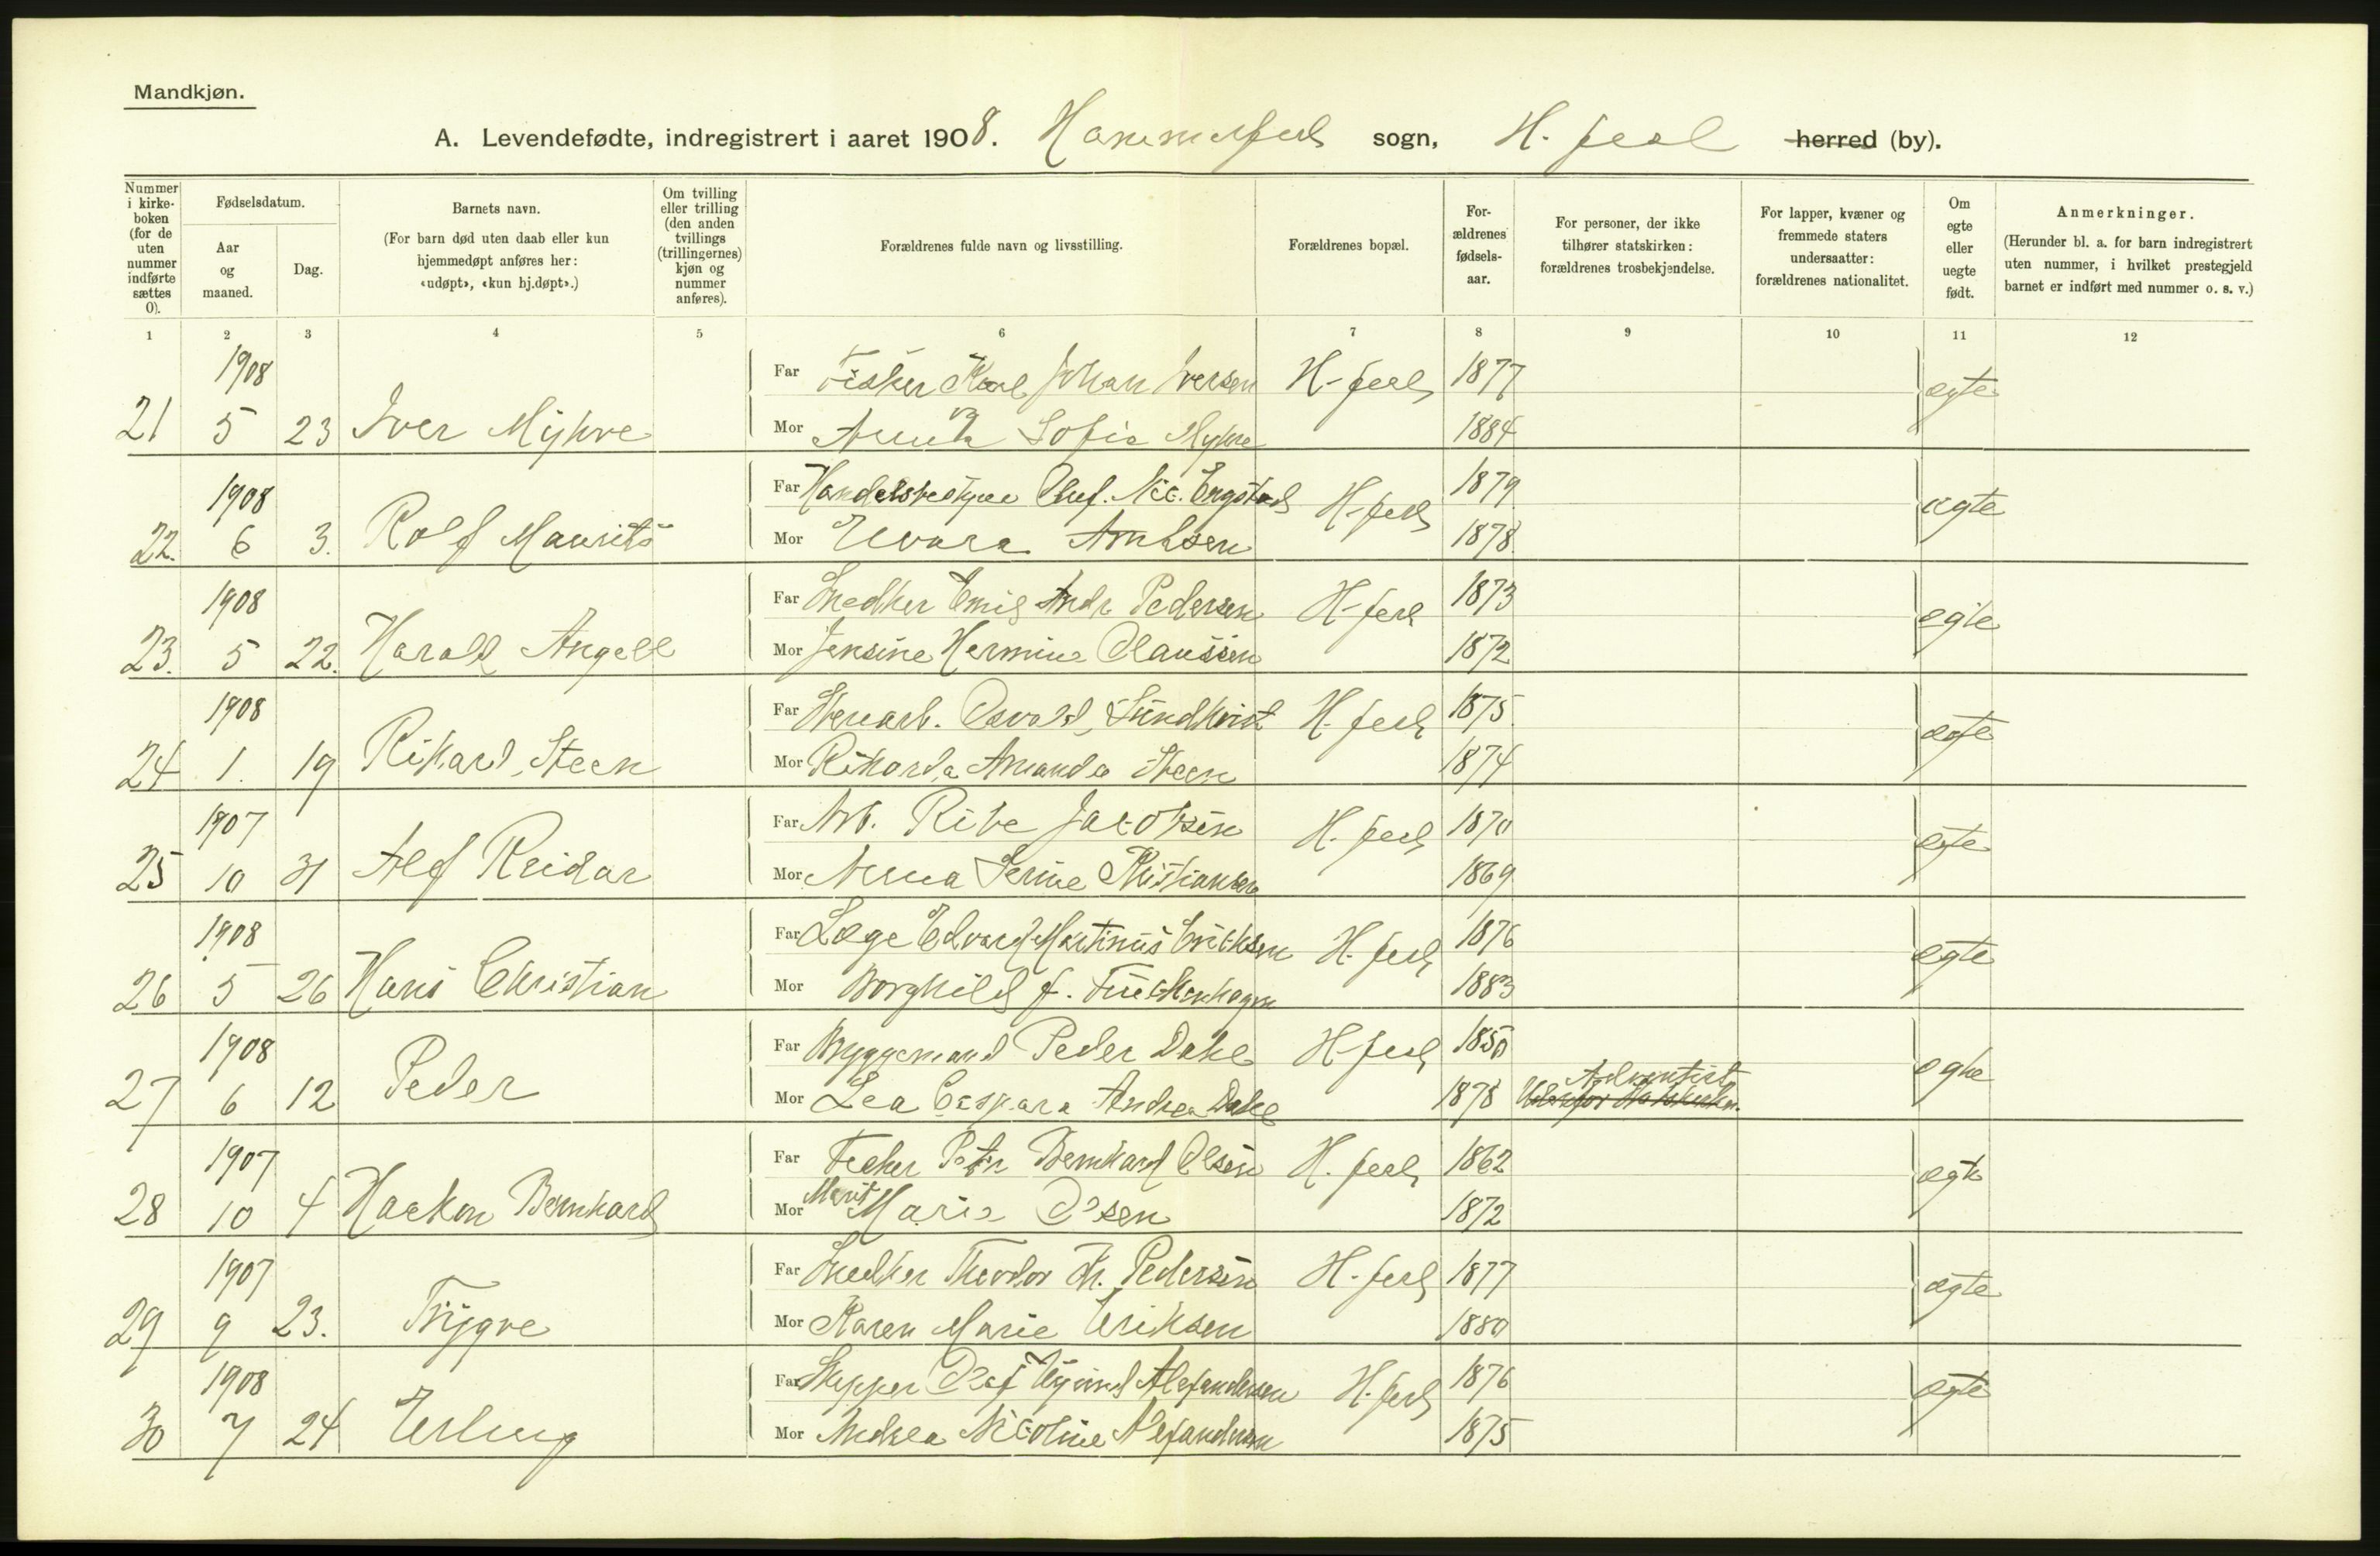 Mandkjøn.
A. Levendefødte, indregistrert i aaret 1908. Hammerfest sogn, H. fest herred (by).
Nummer i kirkeboken (for de uten nummer indførte sættes 0).
Fødselsdatum.
Aar og maaned.
Dag.
Barnets navn.
(For barn død uten daab eller kun hjemmedøpt anføres her: «udøpt», «kun hj.døpt».)
Om tvilling eller trilling (den anden tvillings (trillingernes) kjøn og nummer anføres).
Forældrenes fulde navn og livsstilling.
Forældrenes bopæl.
For-ældrenes fødsels-aar.
For personer, der ikke tilhører statskirken: forældrenes trosbekjendelse.
For lapper, kvæner og fremmede staters undersaatter: forældrenes nationalitet.
Om egte eller uegte født.
Anmerkninger.
(Herunder bl. a. for barn indregistrert uten nummer, i hvilket prestegjeld barnet er indført med nummer o. s. v.)
1 2 3 4 5 6 7 8 9 10 11 12
1908 Far Fisker Karl Johan Iversen H-fest 1877 egte
21 5 23 Iver Myhre Mor Sofie Myhre 1884
1908 Far Handelsbestyrer Oluf. Nic. Engstad H-fest 1879 egte
22. 6 3. Rolf Maurits Mor Elvara 1878
1908 Far Snedker Emil Andr. Pedersen H-fest 1873 egte
23. 5 22. Harald Angell Mor Jensine Hermine Claussen 1872
1908 Far Osvald Sundkvist H. fest 1875 egte
24 1. 19 Rikard Steen Mor Rikarda Amanda Steen 1874
1907 Far Arb. Jacobsen H. fest 1870 egte
25 10 31 Alf Reidar Mor Anna Serine Kristiansen 1869
1908 Far Læge Edvard Martinus Ericksen H. fest 1876 egte
26 5 26 Hans Christian Mor Borghild f. 1883
1908 Far Bryggemand Peder Dahl H-fest 1850 egte
27 6 12 Peder Mor Lea Caspara Andrea Dahl 1878 Adventist Udenfor Statskirken.
1907 Far Fisker Petr Bernhard Olsen H. fest 1862 egte
28 10 4 Haakon Bernhard Mor Marit Marie Olsen 1872
1907 Far Snedker Theodor Fr. Pedersen H. fest 1877 ægte
29 9 23. Trygve Mor Karen Marie Eriksen 1880
1908 Far Skipper Olaf Alexandersen H. fest 1876 egte
30 7 24 Erling Mor Andrea Nicoline Alexandersen 1875